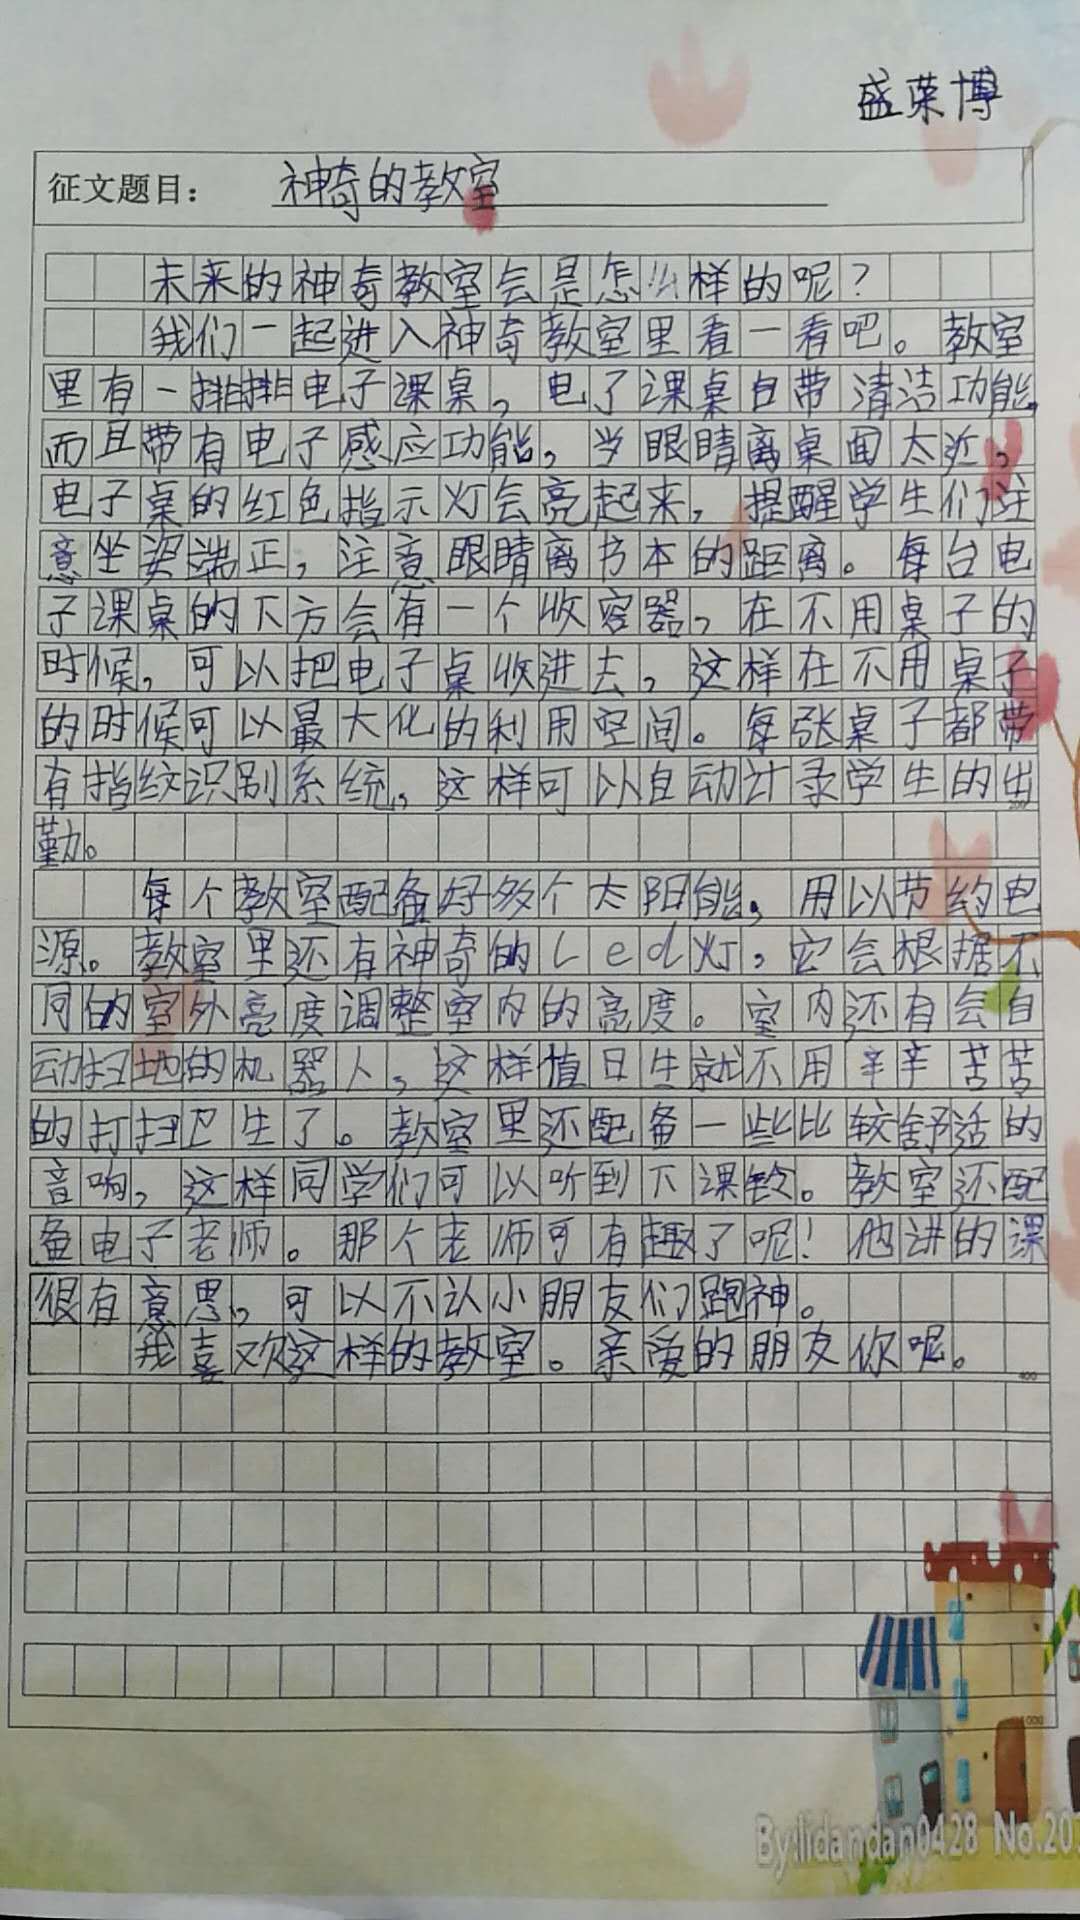 盛荣博
征文题目：神奇的教室
未来的神奇教室会是怎么样的呢？
我们一起进入神奇教室里看一看吧。教室
里有一排排电子课桌，电了课桌自带清洁功能，
而且带有电子感应功能，当眼睛离桌面太近，
电子桌的红色指示灯会亮起来，提醒学生们注
意坐姿端正，注意眼睛离书本的距离。每台电
子课桌的下方会有一个收容器，在不用桌子的
时候，可以把电子桌收进去，这样在不用桌子
的时候可以最大化的利用空间。每张桌子都带
有指纹识别系统，这样可以自动计录学生的出
200
勤。
每个教室配备好多个太阳能，用以节约电
源。教室里还有神奇的Led灯，它会根据不
同的室外亮度调整室内的亮度。室内还有会自
动扫地的机器人，这样值日生就不用辛辛苦苦
的打扫卫生了。教室里还配备一些比较舒适的
音响，这样同学们可以听到下课铃。教室还配
备电子老师。那个老师可有趣了呢！他讲的课
很有意思，可以不认小朋友们跑神。
我喜欢这样的教室。亲爱的朋友你呢。
400
By:lidandan0428 No.20